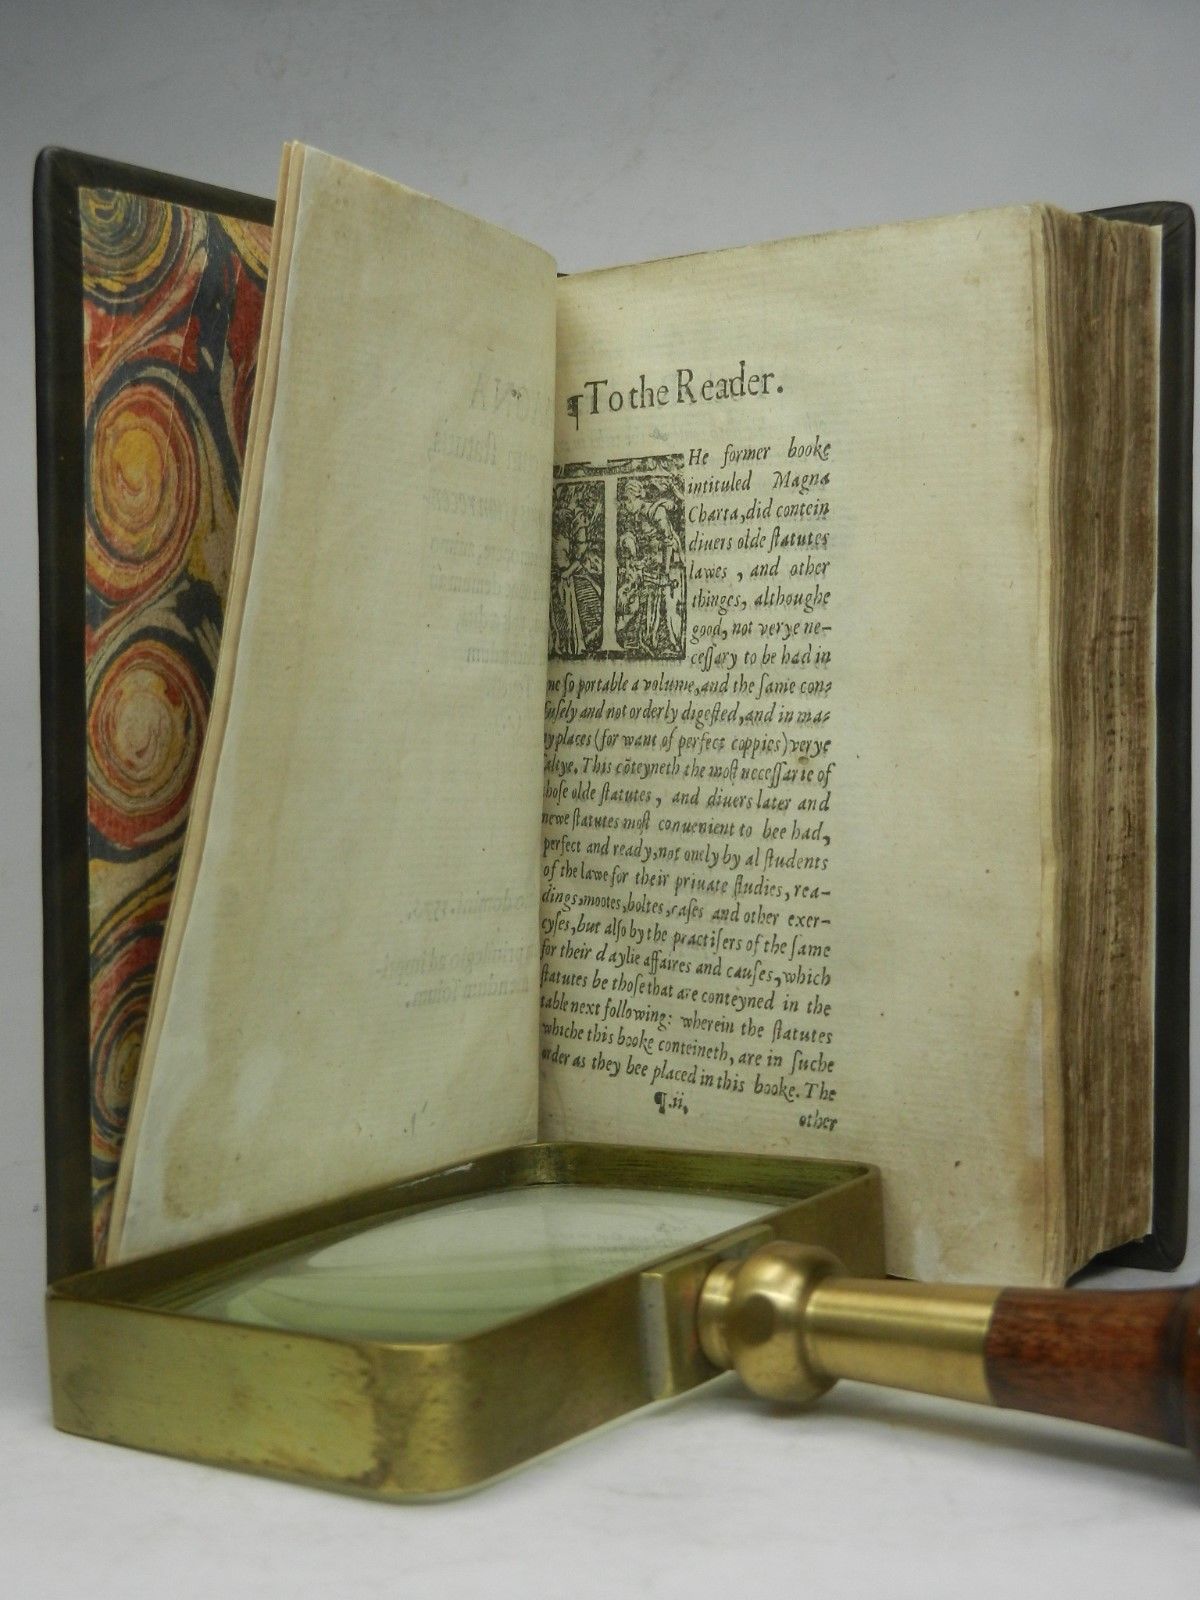 ¶To the Reader.
THe former booke
intituled Magna
Charta, did contein
diuers olde ſtatutes
lawes , and other
thinges, althoughe
good, not verye ne-
ceſſary to be had in
ſo portable a volume, and the ſame con-
and not orderly digeſted, and in ma-
ny places (for want of perfect coppies) verye
This cōteyneth the moſt neceſſarie of
thoſe olde ſtatutes , and diuers later and
newe ſtatutes moſt conuenient to bee had,
perfect and ready, not onely by al ſtudents
of the lawe for their priuate ſtudies, rea-
dings, mootes, boltes, caſes and other exer-
cyſes, but alſo by the practiſers of the ſame
for their daylie affaires and cauſes, which
ſtatutes be thoſe that are conteyned in the
table next following: wherein the ſtatutes
whiche this booke conteineth, are in ſuche
order as they bee placed in this booke. The
¶.ii.
other